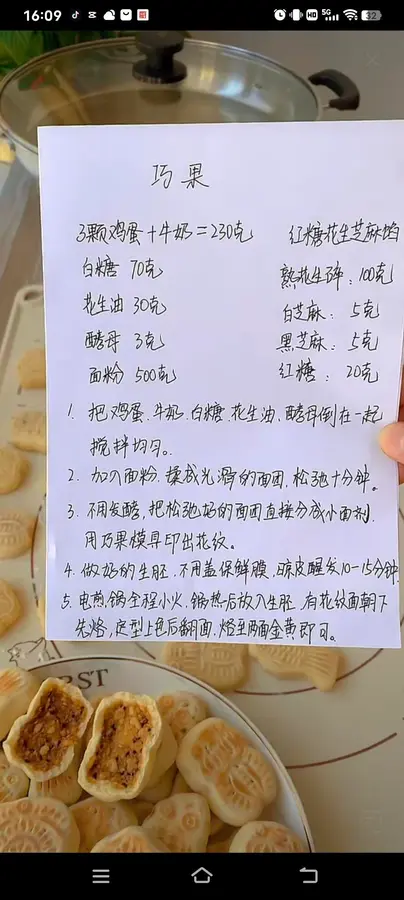 16:09
HD 5G 32
巧果
3颗鸡蛋+牛奶=230克
白糖 70克
花生油 30克
酵母 3克
面粉 500克
红糖花生芝麻馅
熟花生碎：100克
白芝麻：5克
黑芝麻：5克
红糖：20克
1. 把鸡蛋、牛奶、白糖、花生油、酵母倒在一起
搅拌均匀。
2. 加入面粉，揉成光滑的面团，松弛十分钟。
3. 不用发酵，把松弛好的面团直接分成小面剂，
用巧果模具印出花纹。
4. 做好的生胚，不用盖保鲜膜，晾皮醒发10-15分钟
5. 电煎锅全程小火，锅热后放入生胚，有花纹面朝下
先烙，定型上色后翻面，烙至两面金黄即可。
RST